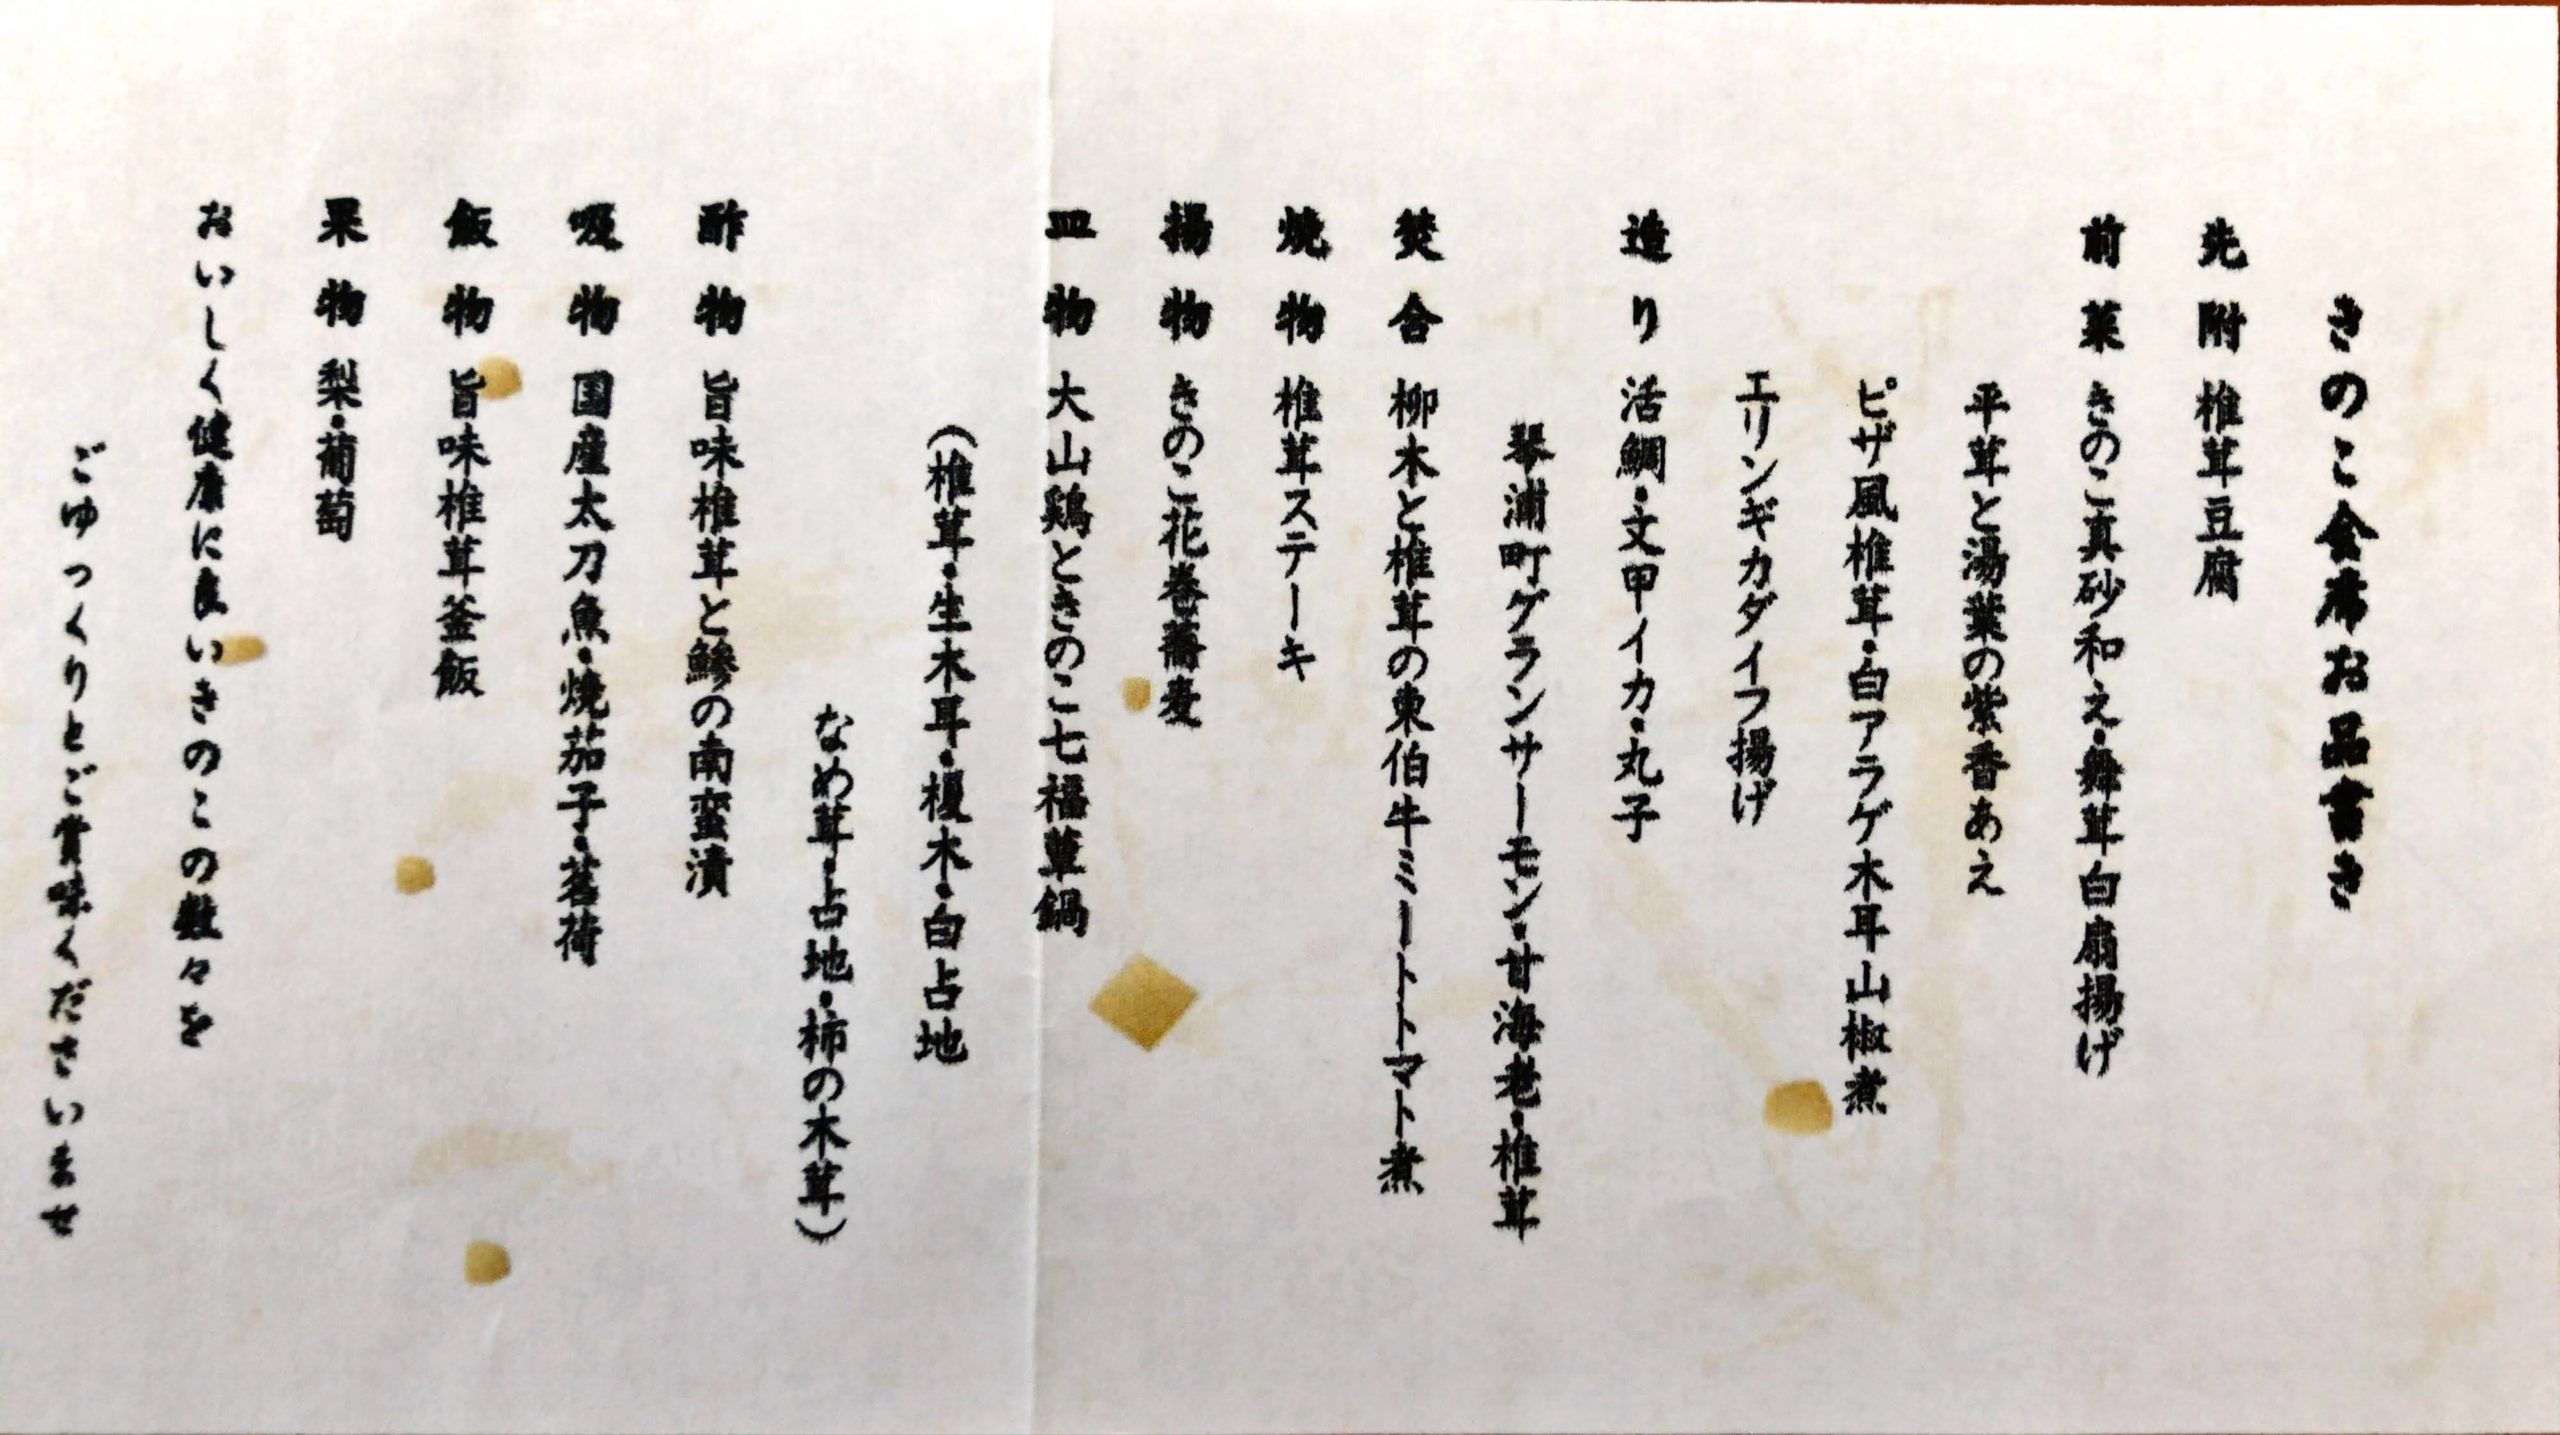 きのこ会席お品書き
先附 椎茸豆腐
前菜 きのこ真砂和え・舞茸白扇揚げ
平茸と湯葉の紫香あえ
ピザ風椎茸・白アラゲ木耳山椒煮
エリンギカダイフ揚げ
造り 活鯛・文甲イカ・丸子
琴浦町グランサーモン・甘海老・椎茸
焚合 柳木と椎茸の東伯牛ミートトマト煮
焼物 椎茸ステーキ
揚物 きのこ花巻蕎麦
皿物 大山鶏ときのこ七福蕈鍋
(椎茸・生木耳・榎木・白占地
なめ茸・占地・柿の木茸)
酢物 旨味椎茸と鯵の南蛮漬
吸物 国産太刀魚・焼茄子・茗荷
飯物 旨味椎茸釜飯
果物 梨・葡萄
おいしく健康に良いきのこの数々を
ごゆっくりとご賞味くださいませ